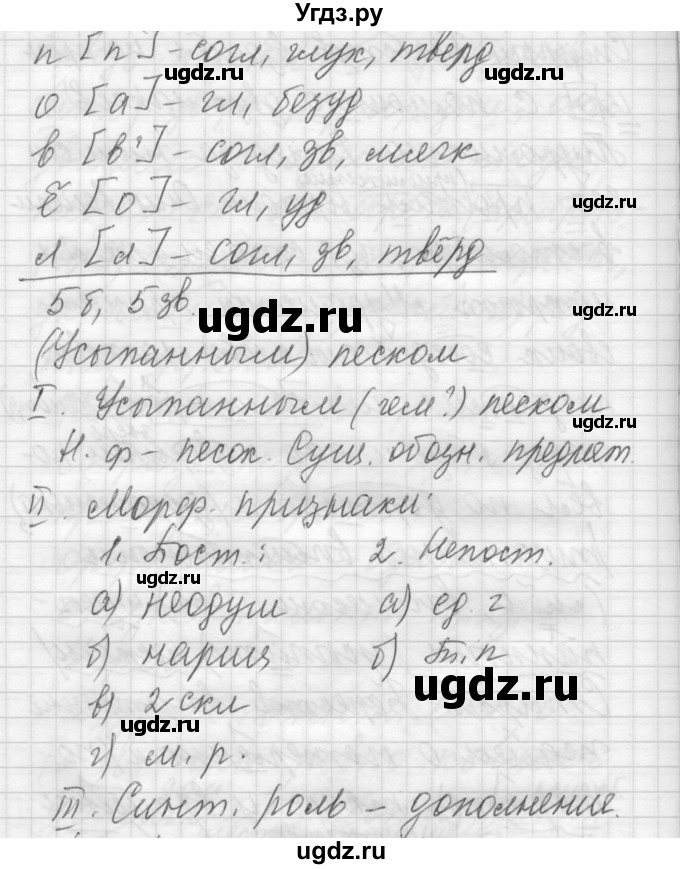 Угдз.ру
п [п] - согл, глух, тверд
о [а] - гл, безуд
в [в'] - согл, зв, мягк
ё [о] - гл, уд
л [л] - согл, зв, твёрд
5 б, 5 зв.
(Усыпанным) песком
I. Усыпанным (чем?) песком
Н. ф - песок. Сущ. обозн. предмет.
II. Морф. признаки:
1. Пост.: 2. Непост.
а) неодуш а) ед. ч
б) нариц б) Т.п
в) 2 скл
г) м. р.
III. Синт. роль - дополнение.
ugdz.ru
ugdz.ru
ugdz.ru
ugdz.ru
ugdz.ru
ugdz.ru
ugdz.ru
ugdz.ru
ugdz.ru
ugdz.ru
ugdz.ru
ugdz.ru
ugdz.ru